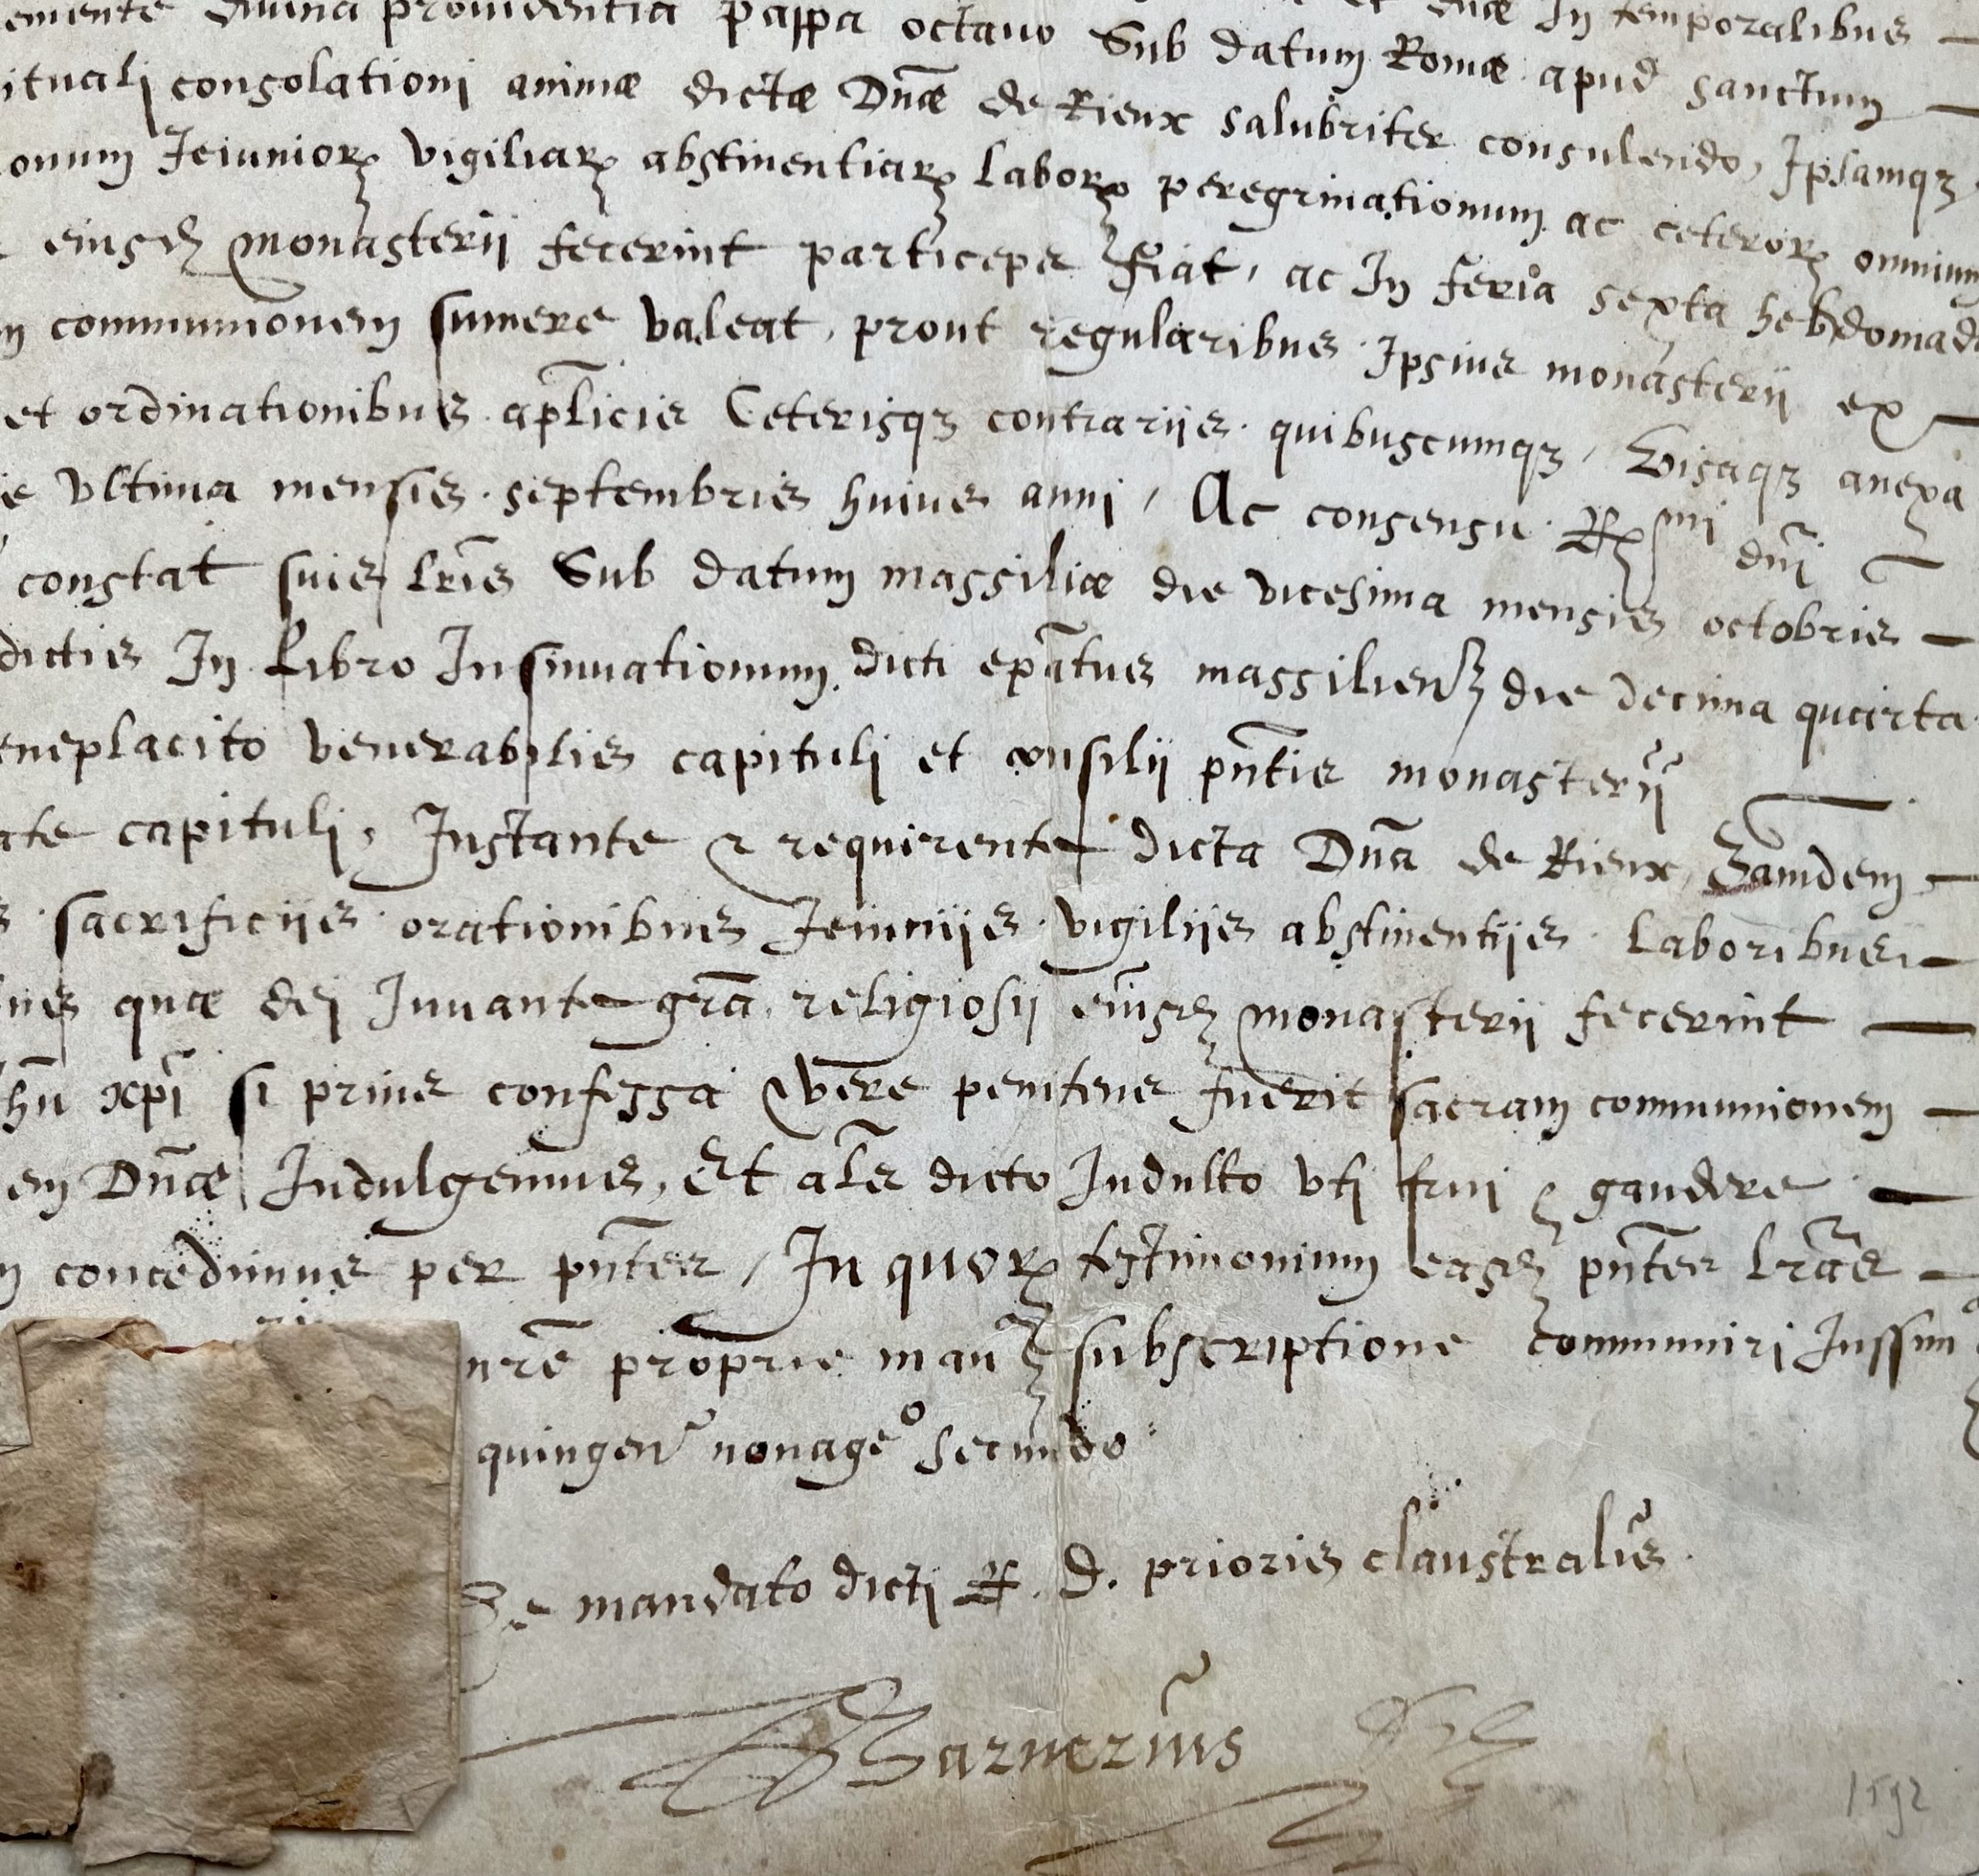 emente divina providentia pappa octavo Sub datum Romæ apud sanctum
ituali consolationi animæ dictæ Dn̄æ de Rieux salubriter consulendo, Ipsamqꝫ
onum Ieiuniorꝝ vigiliarꝝ abstinentiarꝝ laborꝝ peregrinationum ac ceterorꝝ omnium
eiusd monasterij fecerint particeps fiat, ac In feria sexta hebdomad
m communionem sumere valeat, prout regularibus Ipsius monasterij ex
et ordinationibus ap̄licis Ceterisqꝫ contrarijs quibuscumqꝫ, Visaqꝫ anexa
ie ultima mensis septembris huius anni, Ac consensu RRmi dn̄i
constat suis lr̄is Sub datum massiliæ die vicesima mensis octobris
dictis In Libro Insinuationum dicti ep̄atus massilien die decima quarta
eneplacito venerabilis capituli et consilij pn̄tis monasterij
ate capituli, Instante & requirente dicta Dn̄a de Rieux, Eamdem
s sacrificijs orationibus Ieiunijs vigilijs abstinentijs laboribus
us quæ dei Iuvante gr̄a religiosij eiusd monasterij fecerint
hū xp̄i si prius confessa & vere penitens fuerit sacram communionem
em Dn̄æ Indulgemus, Et al̄s dicto Indulto uti frui & gaudere
m concedimus per pn̄tes, In quorꝝ testimonium easd pn̄tes lr̄as
nr̄e proprie man subscriptione communiri Iussim
quingen nonageo secundo
De mandato dicti R. D. prioris claustralis
Garnerius
1592